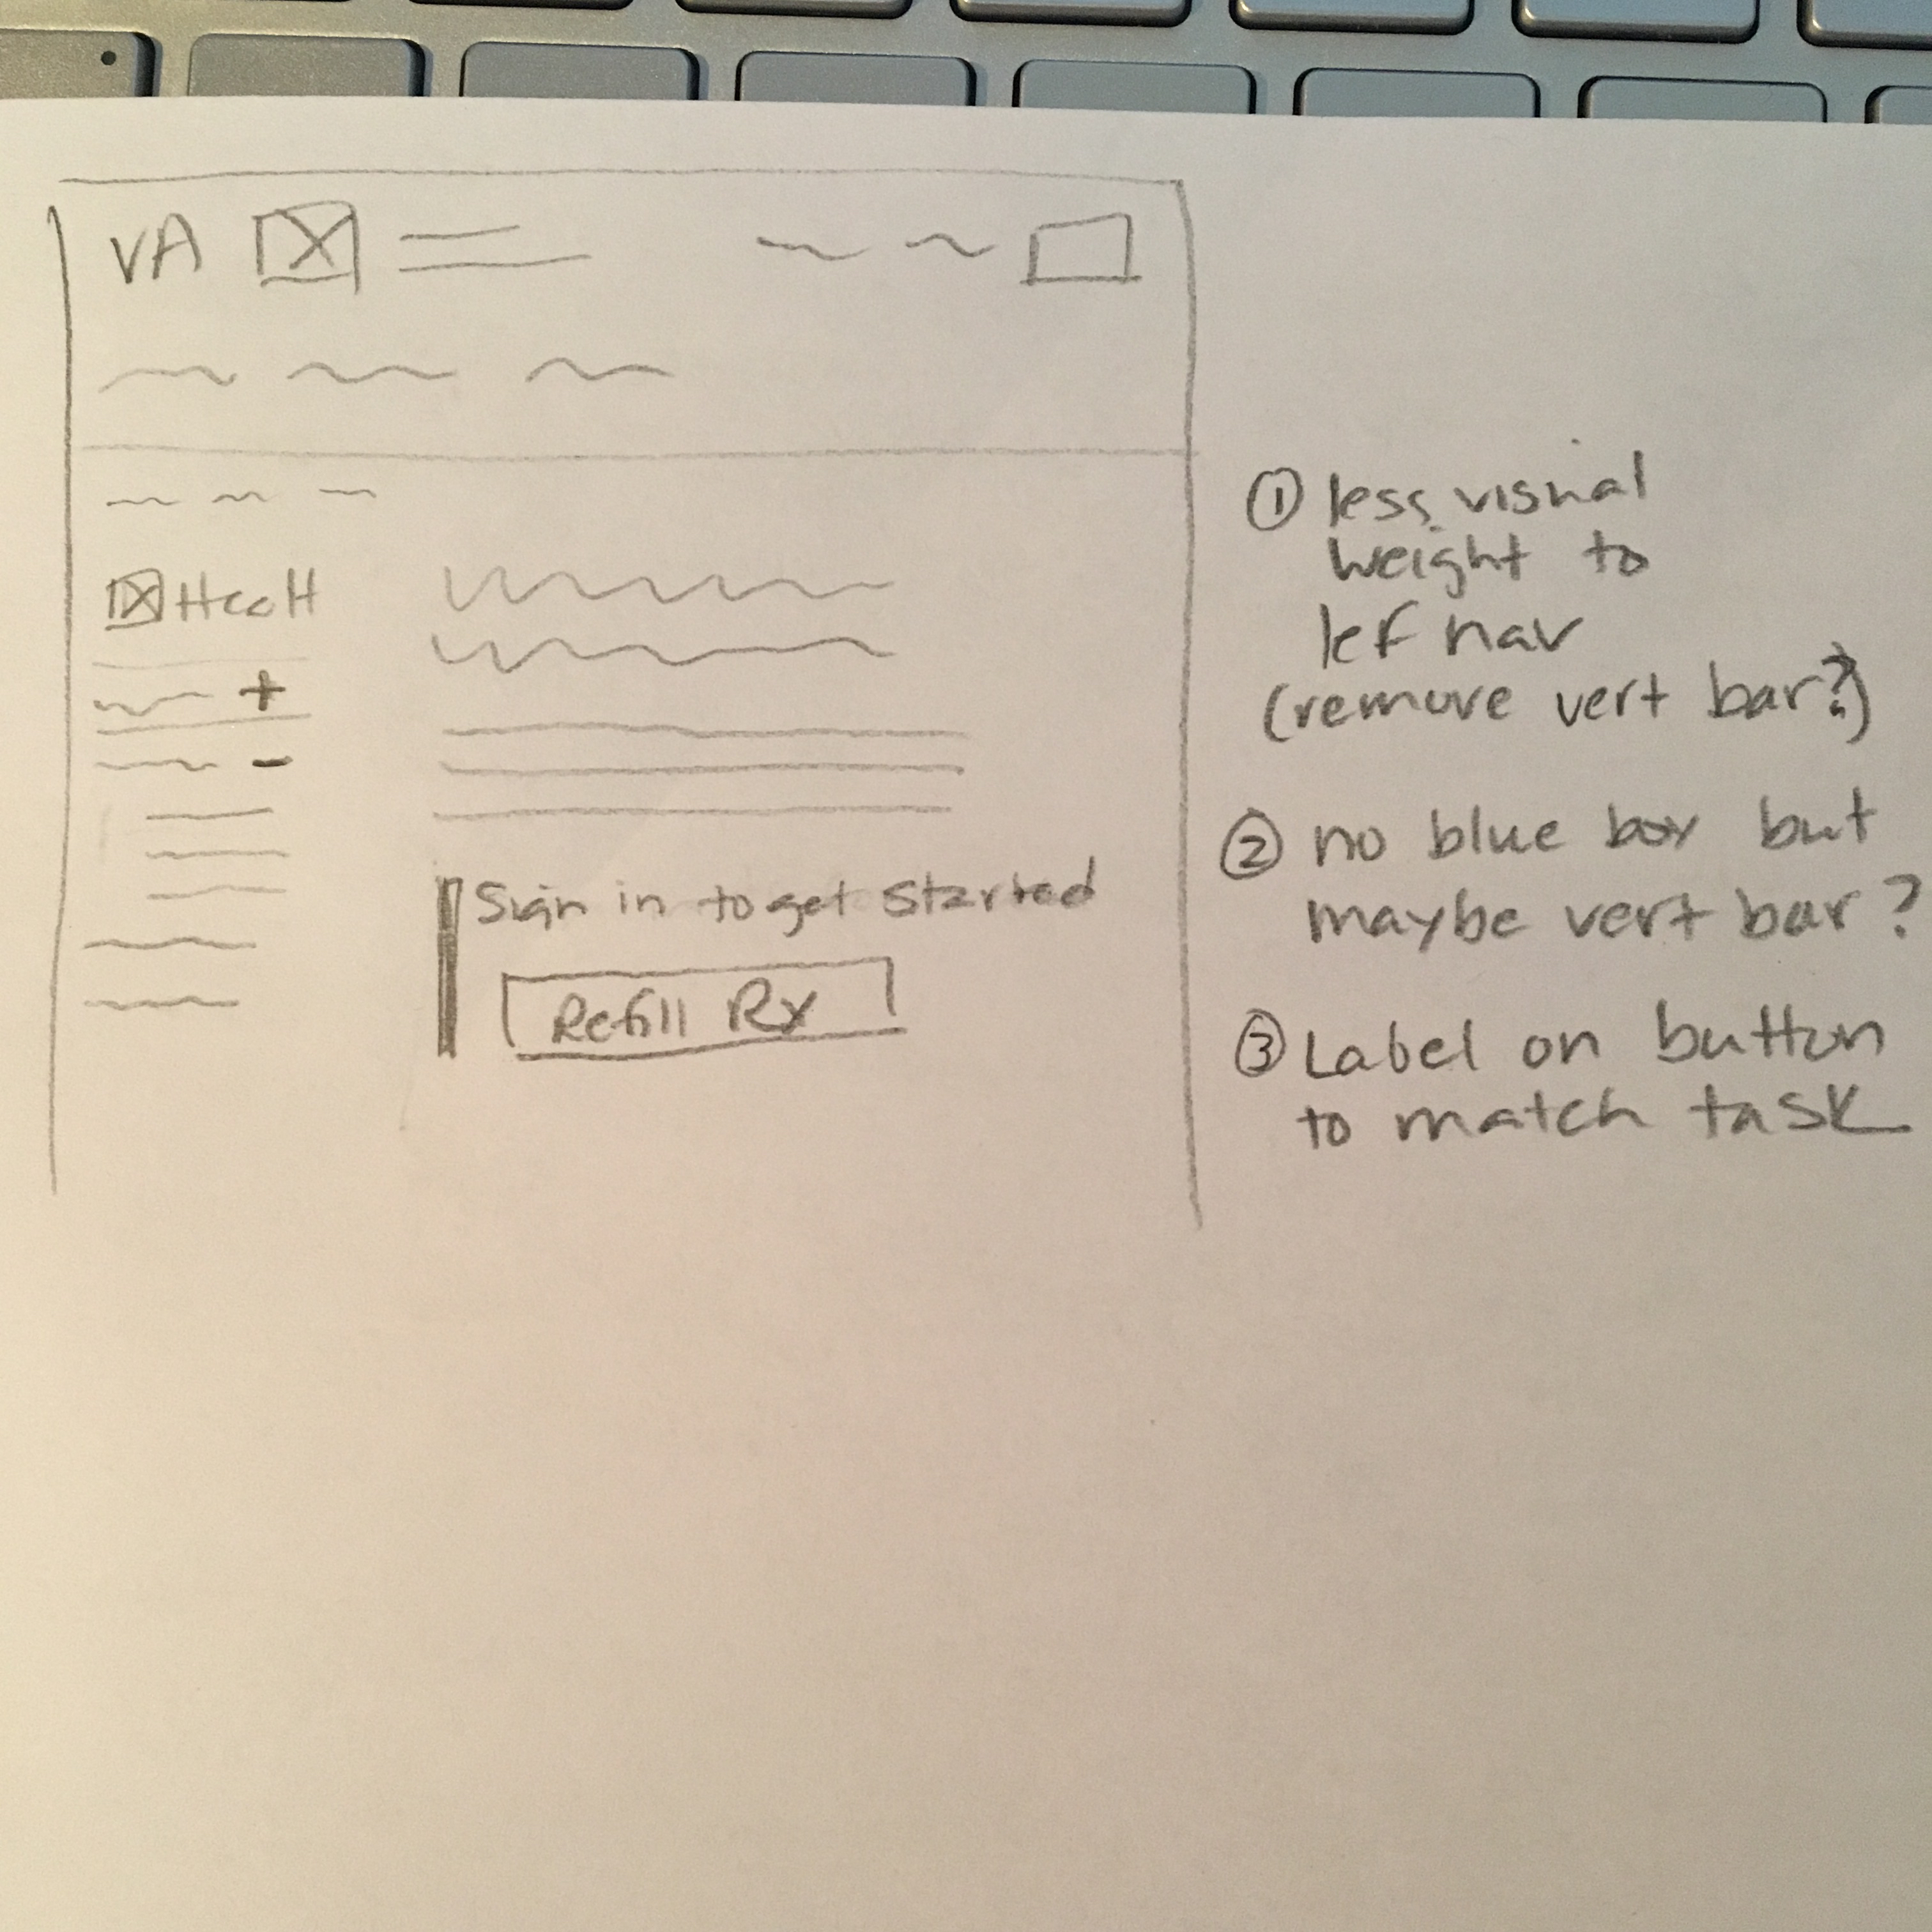 VA
+
-
Sign in to get started
Refill Rx
① less visual
weight to
lef nav
(remove vert bar?)
② no blue box but
maybe vert bar?
③ Label on button
to match task